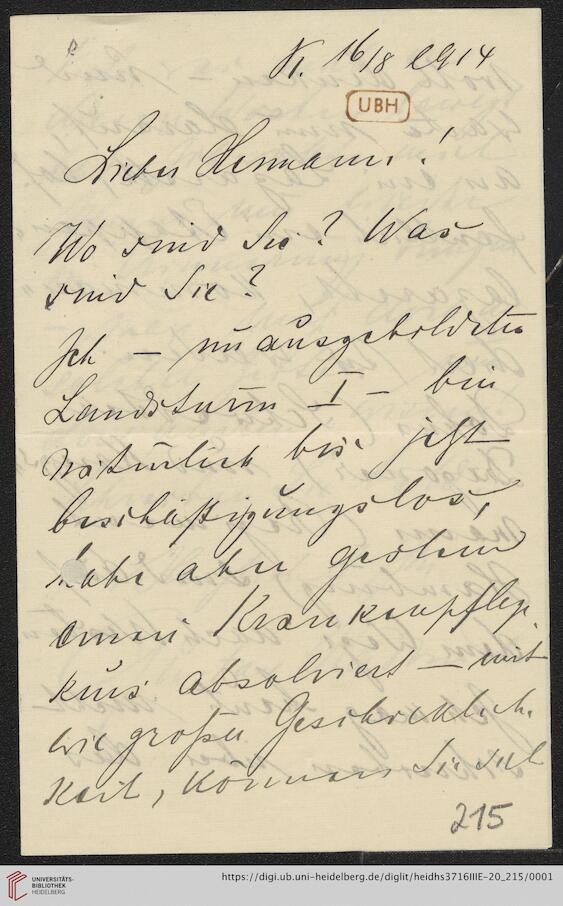 K. 16/8 1914
UBH
Lieber Hermann!
Wo sind Sie? Was
sind Sie?
Ich – unausgebildeter
Landsturm I – bin
natürlich bis jetzt
beschäftigungslos,
habe aber gestern
einen Krankenpflege-
kurs absolviert – mit
wie großer Geschicklich-
keit, können Sie sich
215
UNIVERSITÄTS-
BIBLIOTHEK
HEIDELBERG
https://digi.ub.uni-heidelberg.de/diglit/heidhs3716IIIE-20_215/0001